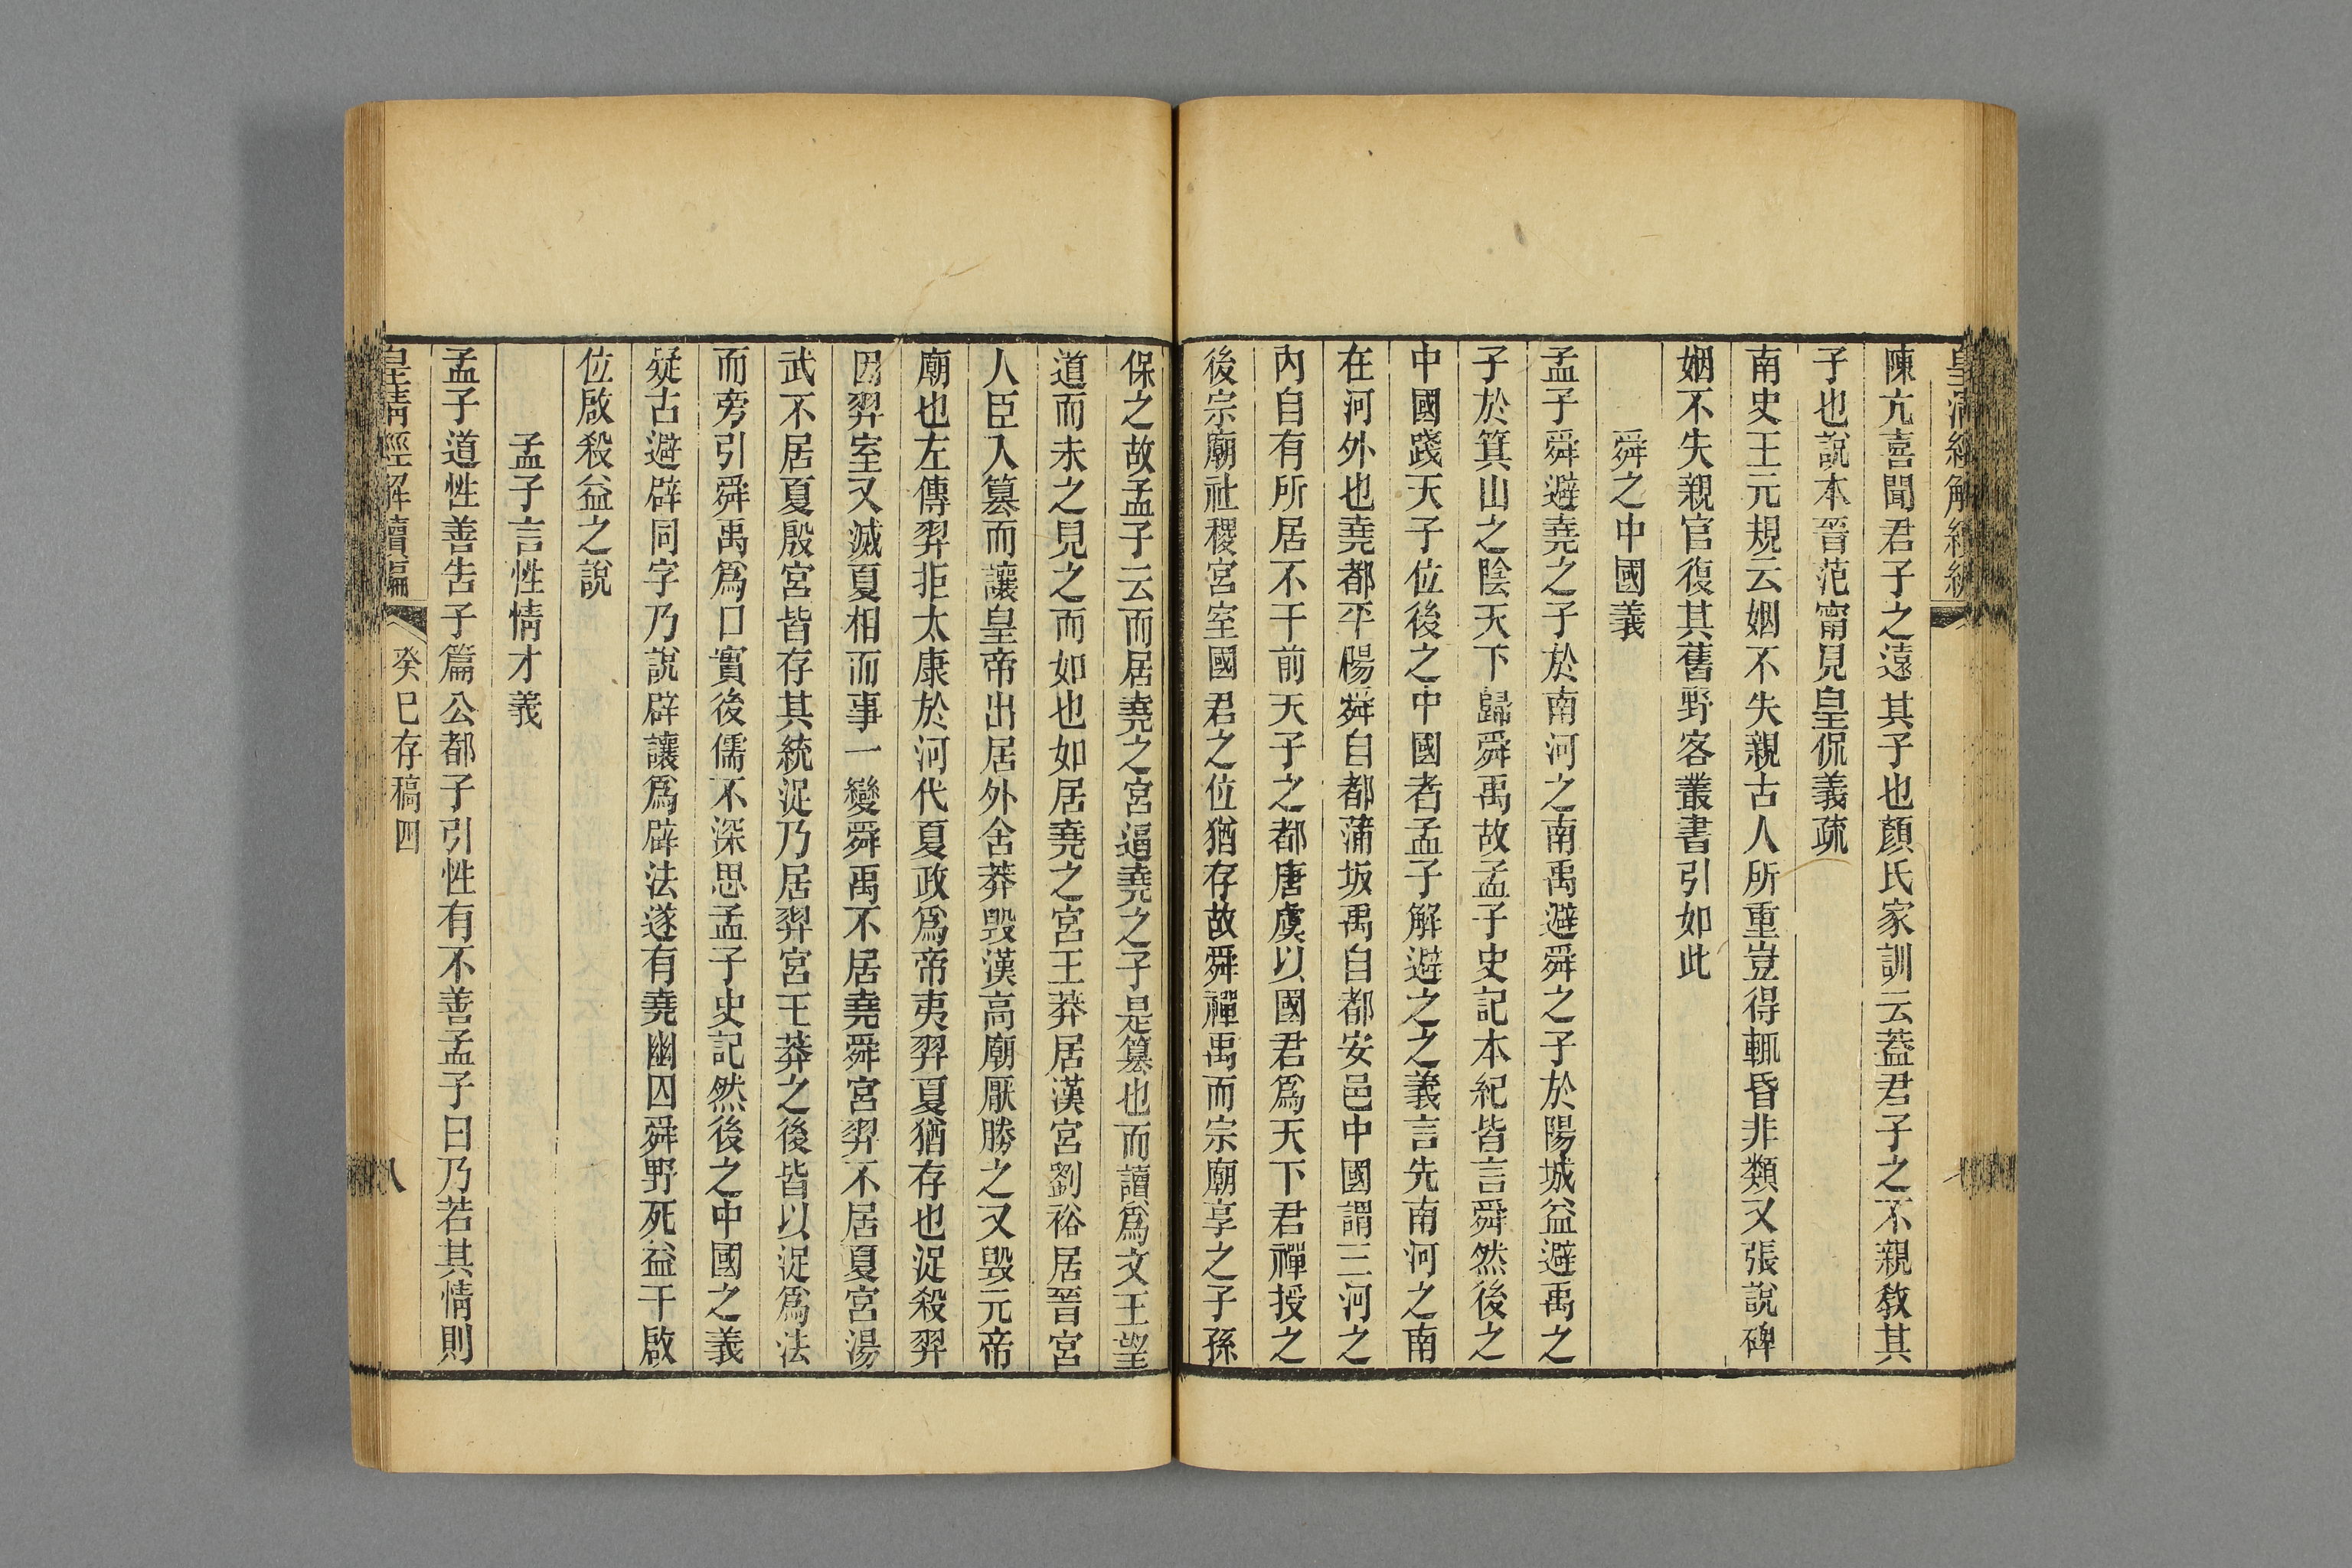 皇清經解續編
陳亢喜聞君子之遠其子也顏氏家訓云葢君子之不親敎其
子也說本晉范甯見皇侃義疏
南史王元規云姻不失親古人所重豈得輒昏非類又張說碑
姻不失親官復其舊野客叢書引如此
舜之中國義
孟子舜避堯之子於南河之南禹避舜之子於陽城益避禹之
子於箕山之陰天下歸舜禹故孟子史記本紀皆言舜然後之
中國踐天子位後之中國者孟子解避之之義言先南河之南
在河外也堯都平陽舜自都蒲坂禹自都安邑中國謂三河之
內自有所居不干前天子之都唐虞以國君爲天下君禪授之
後宗廟社稷宮室國君之位猶存故舜禪禹而宗廟享之子孫
保之故孟子云而居堯之宮逼堯之子是篡也而讀爲文王望
道而未之見之而如也如居堯之宮王莽居漢宮劉裕居晉宮
人臣入篡而讓皇帝出居外舍莽毁漢高廟厭勝之又毁元帝
廟也左傳羿拒太康於河代夏政爲帝夷羿夏猶存也浞殺羿
因羿室又滅夏相而事一變舜禹不居堯舜宮羿不居夏宮湯
武不居夏殷宮皆存其統浞乃居羿宮王莽之後皆以浞爲法
而旁引舜禹爲口實後儒不深思孟子史記然後之中國之義
疑古避辟同字乃說辟讓爲辟法遂有堯幽囚舜野死益干啟
位啟殺益之說
孟子言性情才義
孟子道性善告子篇公都子引性有不善孟子曰乃若其情則
皇清經解續編
癸巳存稿四
八